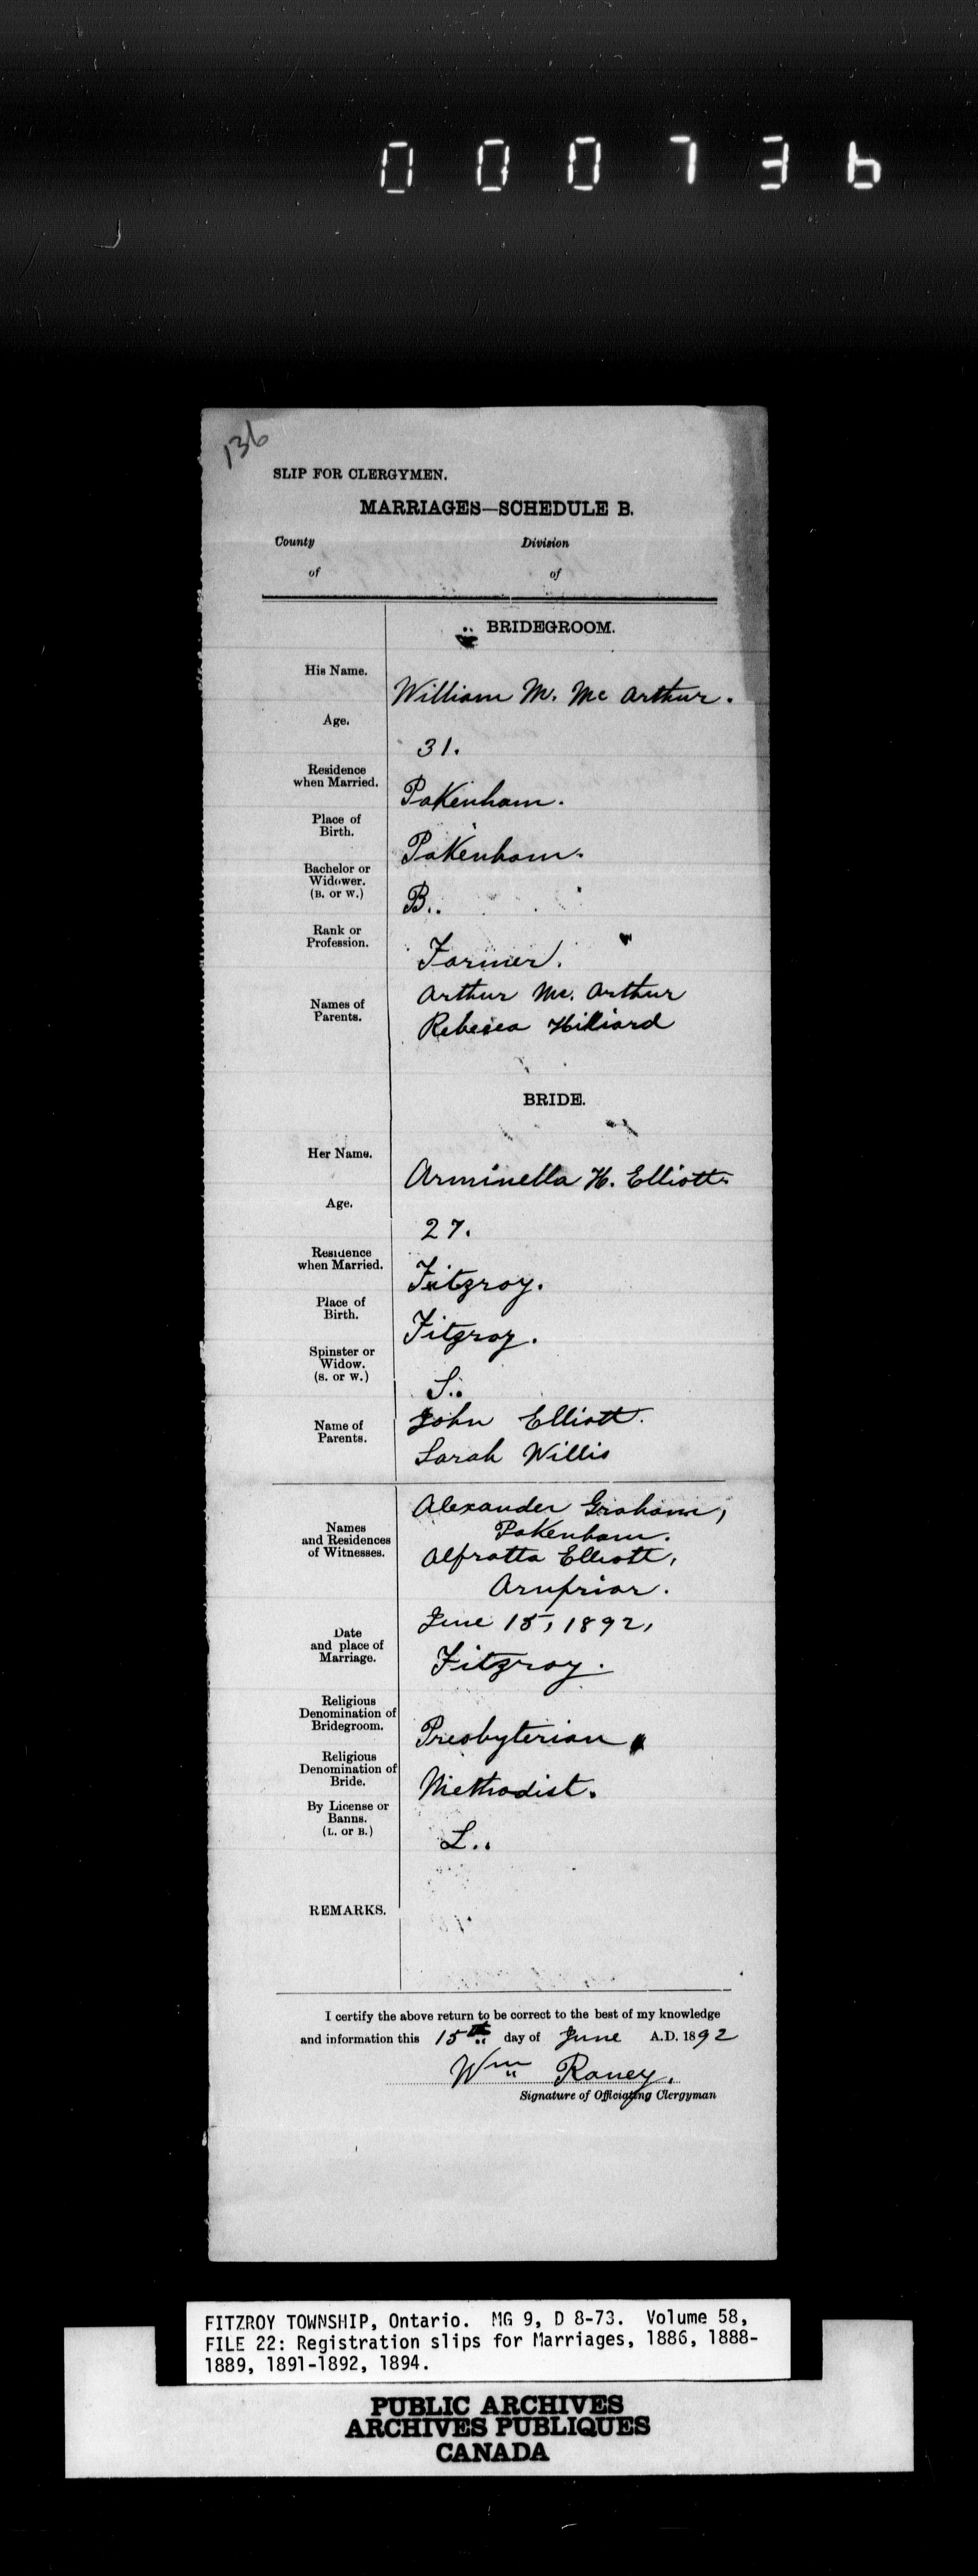 000736
136
SLIP FOR CLERGYMEN.
MARRIAGES—SCHEDULE B.
County
Division
of
of
BRIDEGROOM.
His Name.
William M. Mc Arthur.
Age.
31.
Residence
when Married.
Pakenham.
Place of
Birth.
Pakenham.
Bachelor or
Widower.
(B. or W.)
B.
Rank or
Profession.
Farmer.
Names of
Parents.
Arthur Mc. Arthur
Rebecca Hilliard
BRIDE.
Her Name.
Arminella H. Elliott
Age.
27.
Residence
when Married.
Fitzroy.
Place of
Birth.
Fitzroy.
Spinster or
Widow.
(S. or W.)
S.
Name of
Parents.
John Elliott.
Sarah Willis
Names
and Residences
of Witnesses.
Alexander Graham,
Pakenham.
Alfratta Elliott,
Arnprior.
Date
and place of
Marriage.
June 15, 1892,
Fitzroy.
Religious
Denomination of
Bridegroom.
Presbyterian
Religious
Denomination of
Bride.
Methodist.
By License or
Banns.
(L. OR B.)
L.
REMARKS.
I certify the above return to be correct to the best of my knowledge
and information this 15th day of June A.D. 1892
Wm Raney.
Signature of Officiating Clergyman
FITZROY TOWNSHIP, Ontario. MG 9, D 8-73. Volume 58,
FILE 22: Registration slips for Marriages, 1886, 1888-
1889, 1891-1892, 1894.
PUBLIC ARCHIVES
ARCHIVES PUBLIQUES
CANADA